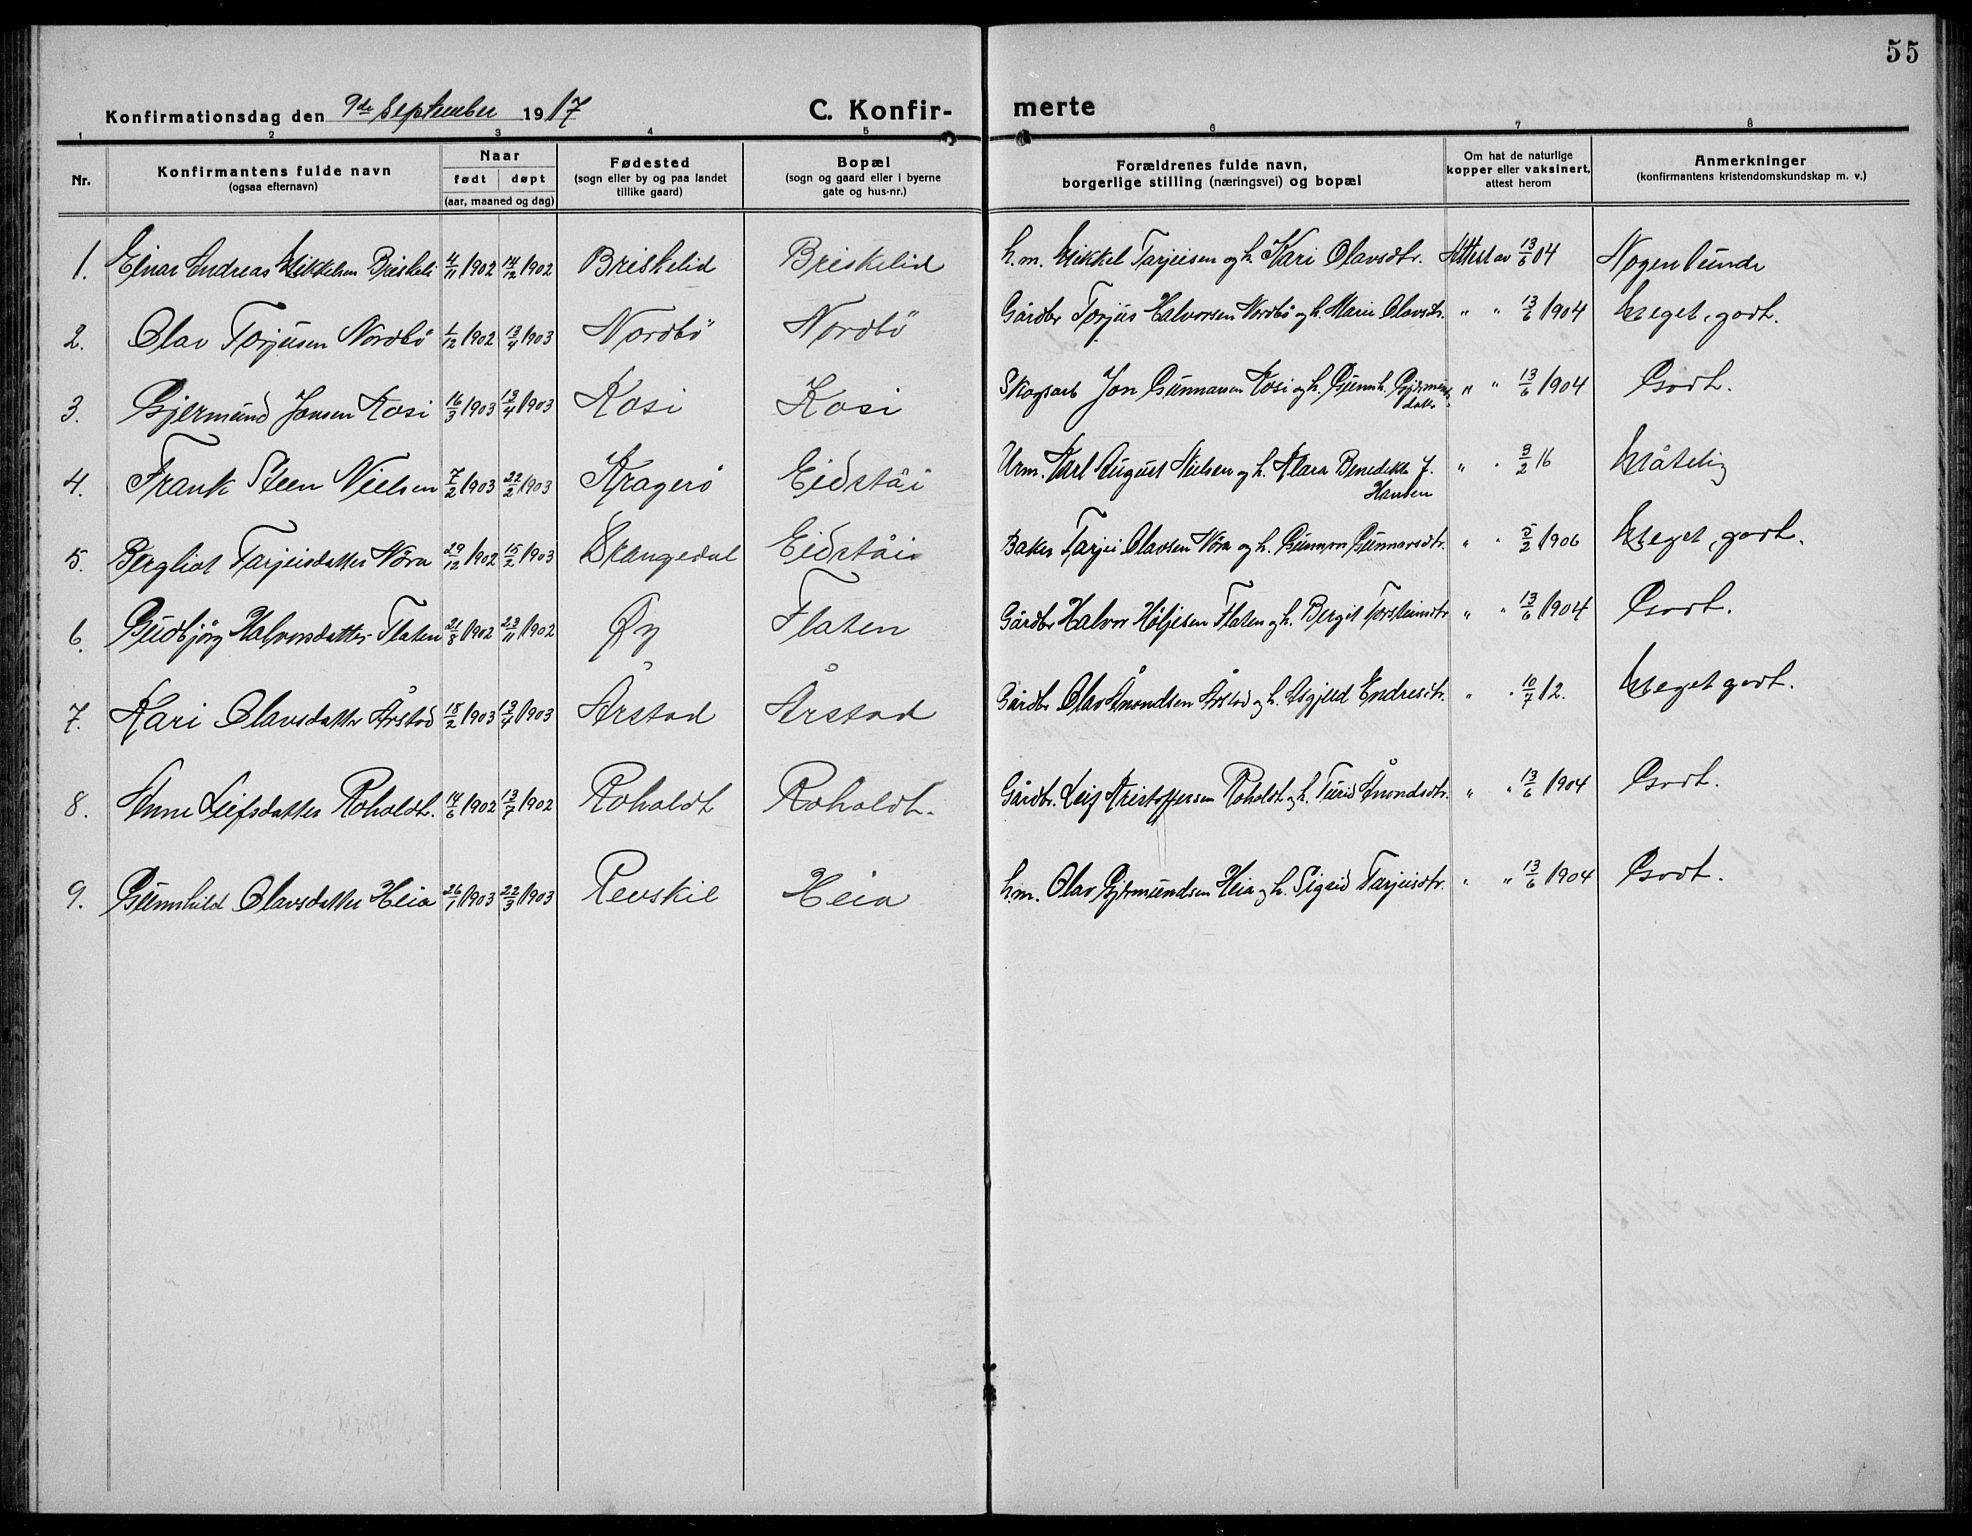 55
Konfirmationsdag den 9de September 1917
C. Konfir- merte
1 2 3 4 5 6 7 8
Nr.
Konfirmantens fulde navn
(ogsaa efternavn)
Naar
født døpt
(aar, maaned og dag)
Fødested
(sogn eller by og paa landet
tillike gaard)
Bopæl
(sogn og gaard eller i byerne
gate og hus-nr.)
Forældrenes fulde navn,
borgerlige stilling (næringsvei) og bopæl
Om hat de naturlige
kopper eller vaksinert,
attest herom
Anmerkninger
(konfirmantens kristendomskundskap m. v.)
1. Einar Andreas Mikkelsen Briskeli 4/11 1902 14/12 1902 Briskelid Briskelid h.m. Mikkel Tarjeisen og h. Kari Olavsdtr. Attest av 13/6 04 Nogenlunde
2. Olav Torjusen Nordbö 1/12 1902 13/4 1903 Nordbö Nordbö Gårdbr Torjus Halvorsen Nordbö og h. Marie Olavsdtr. " " 13/6 1904 Meget godt.
3. Gjermund Jonsen Kosi 16/3 1903 13/4 1903 Kosi Kosi Skogsarb Jon Gunnarsen Kosi og h. Gunnh. Gjermunds-
datter " " 13/6 1904 Godt.
4. Frank Steen Nielsen 7/2 1903 22/2 1903 Kragerö Eidståi Urm. Karl August Nielsen og h. Klara Benedikte J.
Hansen " " 3/2 16 Måtelig
5. Bergliot Tarjeisdatter Nöra 29/12 1902 15/2 1903 Drangedal Eidståi Baker Tarjei Olavsen Nöra og h. Gunvor Gunnarsdtr. " " 5/2 1906 Meget godt.
6. Gudbjörg Halvorsdatter Flaten 21/8 1902 23/11 1902 Øy Flaten Gårdbr Halvor Höljesen Flaten og h. Bergit Torsteinsdtr " " 13/6 1904 Godt.
7. Kari Olavsdatter Årstad 18/2 1903 13/4 1903 Årstad Årstad Gårdbr Olav Ånondsen Årstad og h. Asgjerd Endresdtr. " " 10/7 12. Meget godt.
8. Anne Leifsdatter Roholdt. 14/6 1902 13/7 1902 Roholdt Roholdt. Gårdbr. Leif Kristoffersen Roholdt og h. Turid Ånondsdtr. " " 13/6 1904 Godt.
9. Gunnhild Olavsdatter Heia 26/1 1903 22/3 1903 Revskil Heia h.m. Olav Gjermundsen Heia og h. Sigrid Tarjeisdtr. " " 13/6 1904 Godt.